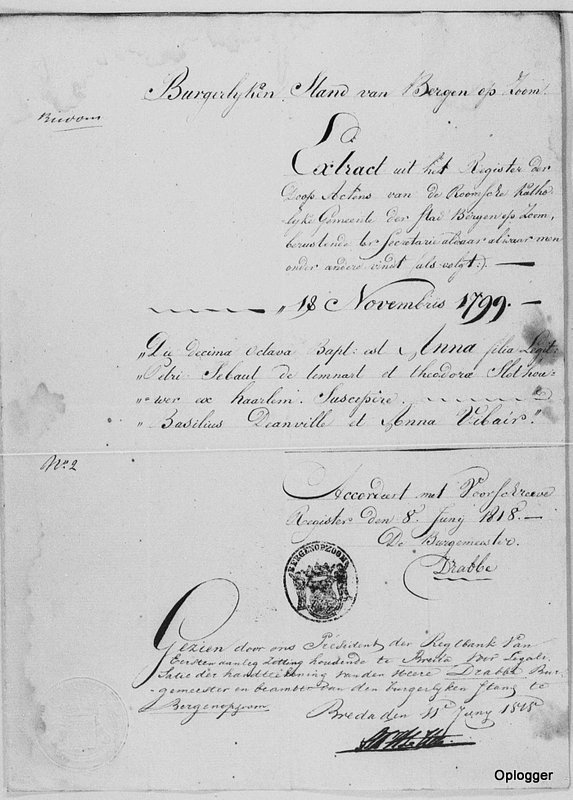 Burgerlyken Stand van Bergen op Zoom.
Extract uit het Register der
Doop Actens van de Roomsche Katho-
lyke Gemeente der Stad Bergen op Zoom,
berustende ter Secretarie aldaar alwaar men
onder andere vindt (als volgt:) —
„ 18 Novembris 1799. —
„Die decima octava Bapt: est Anna filia Legit:
„Petri Sebaut de lemnart et theodora Slothou=
„wer ex haarlem. Suscepere.
„Basilius Deanville et Anna Vibair."
No. 2
Accordeert met Voorschreeve
Register den 8. Juny 1818. —
De Burgemeester.
Drabbe
BERGENOPZOOM
Gezien door ons President der Regtbank Van
Eersten aanleg Zitting houdende te Breda voor Legali-
satie der handteekening van den Heere Drabbe Bur-
gemeester en beambte van den burgerlyken stand te
Bergenopzoom
Breda den 11e Juny 1818
Oplogger